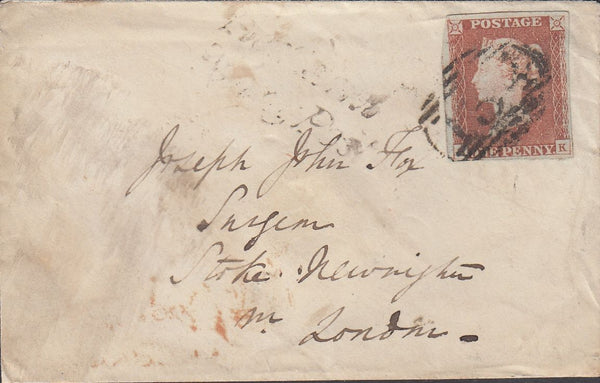 POSTAGE
NE PENNY K
Joseph John Fox
Surgeon
Stoke Newington
nr London